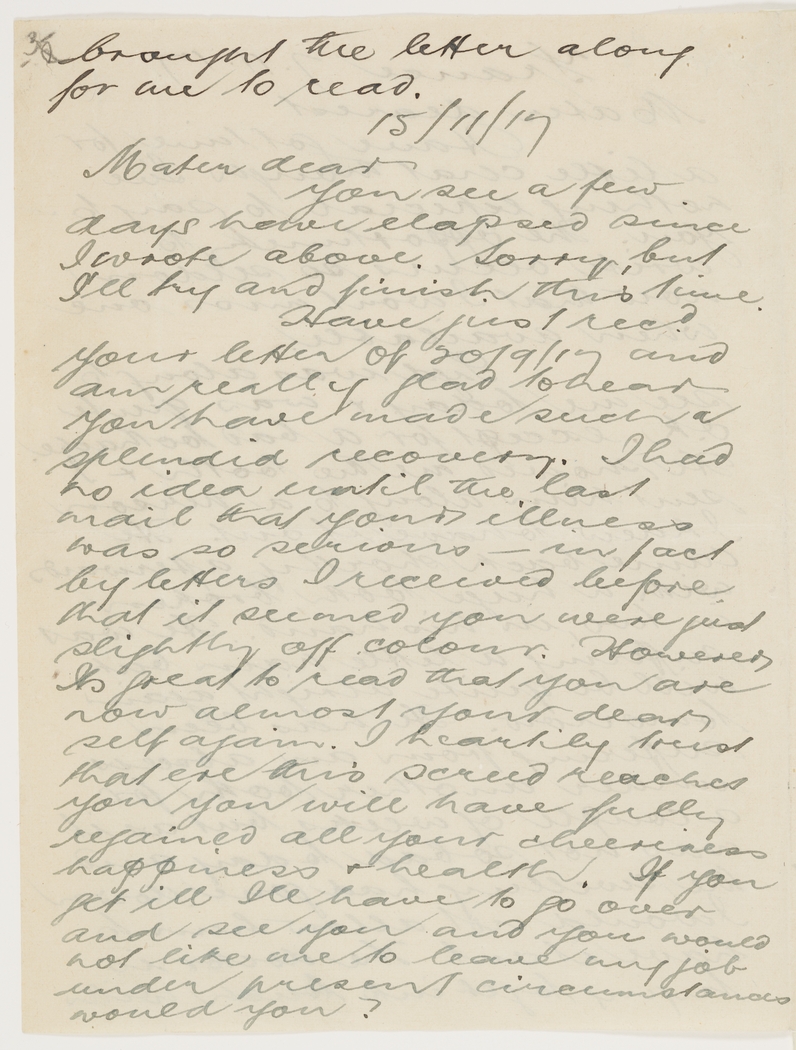 brought the letter along
for me to read.
15/11/17
Mater dear
You see a few
days have elapsed since
I wrote above. Sorry, but
I'll try and finish this time.
Have just recd
your letter of 20/9/17 and
am really glad to hear
you have made such a
splendid recovery. I had
no idea until the last
mail that your illness
was so serious – in fact
by letters I received before
that it seemed you were just
slightly off colour. However
its great to read that you are
now almost your dear
self again. I heartily trust
that ere this screed reaches
you you will have fully
regained all your cheeriness
happiness & health. If you
get ill Ill have to go over
and see you and you would
not like me to leave my job
under present circumstances
would you?